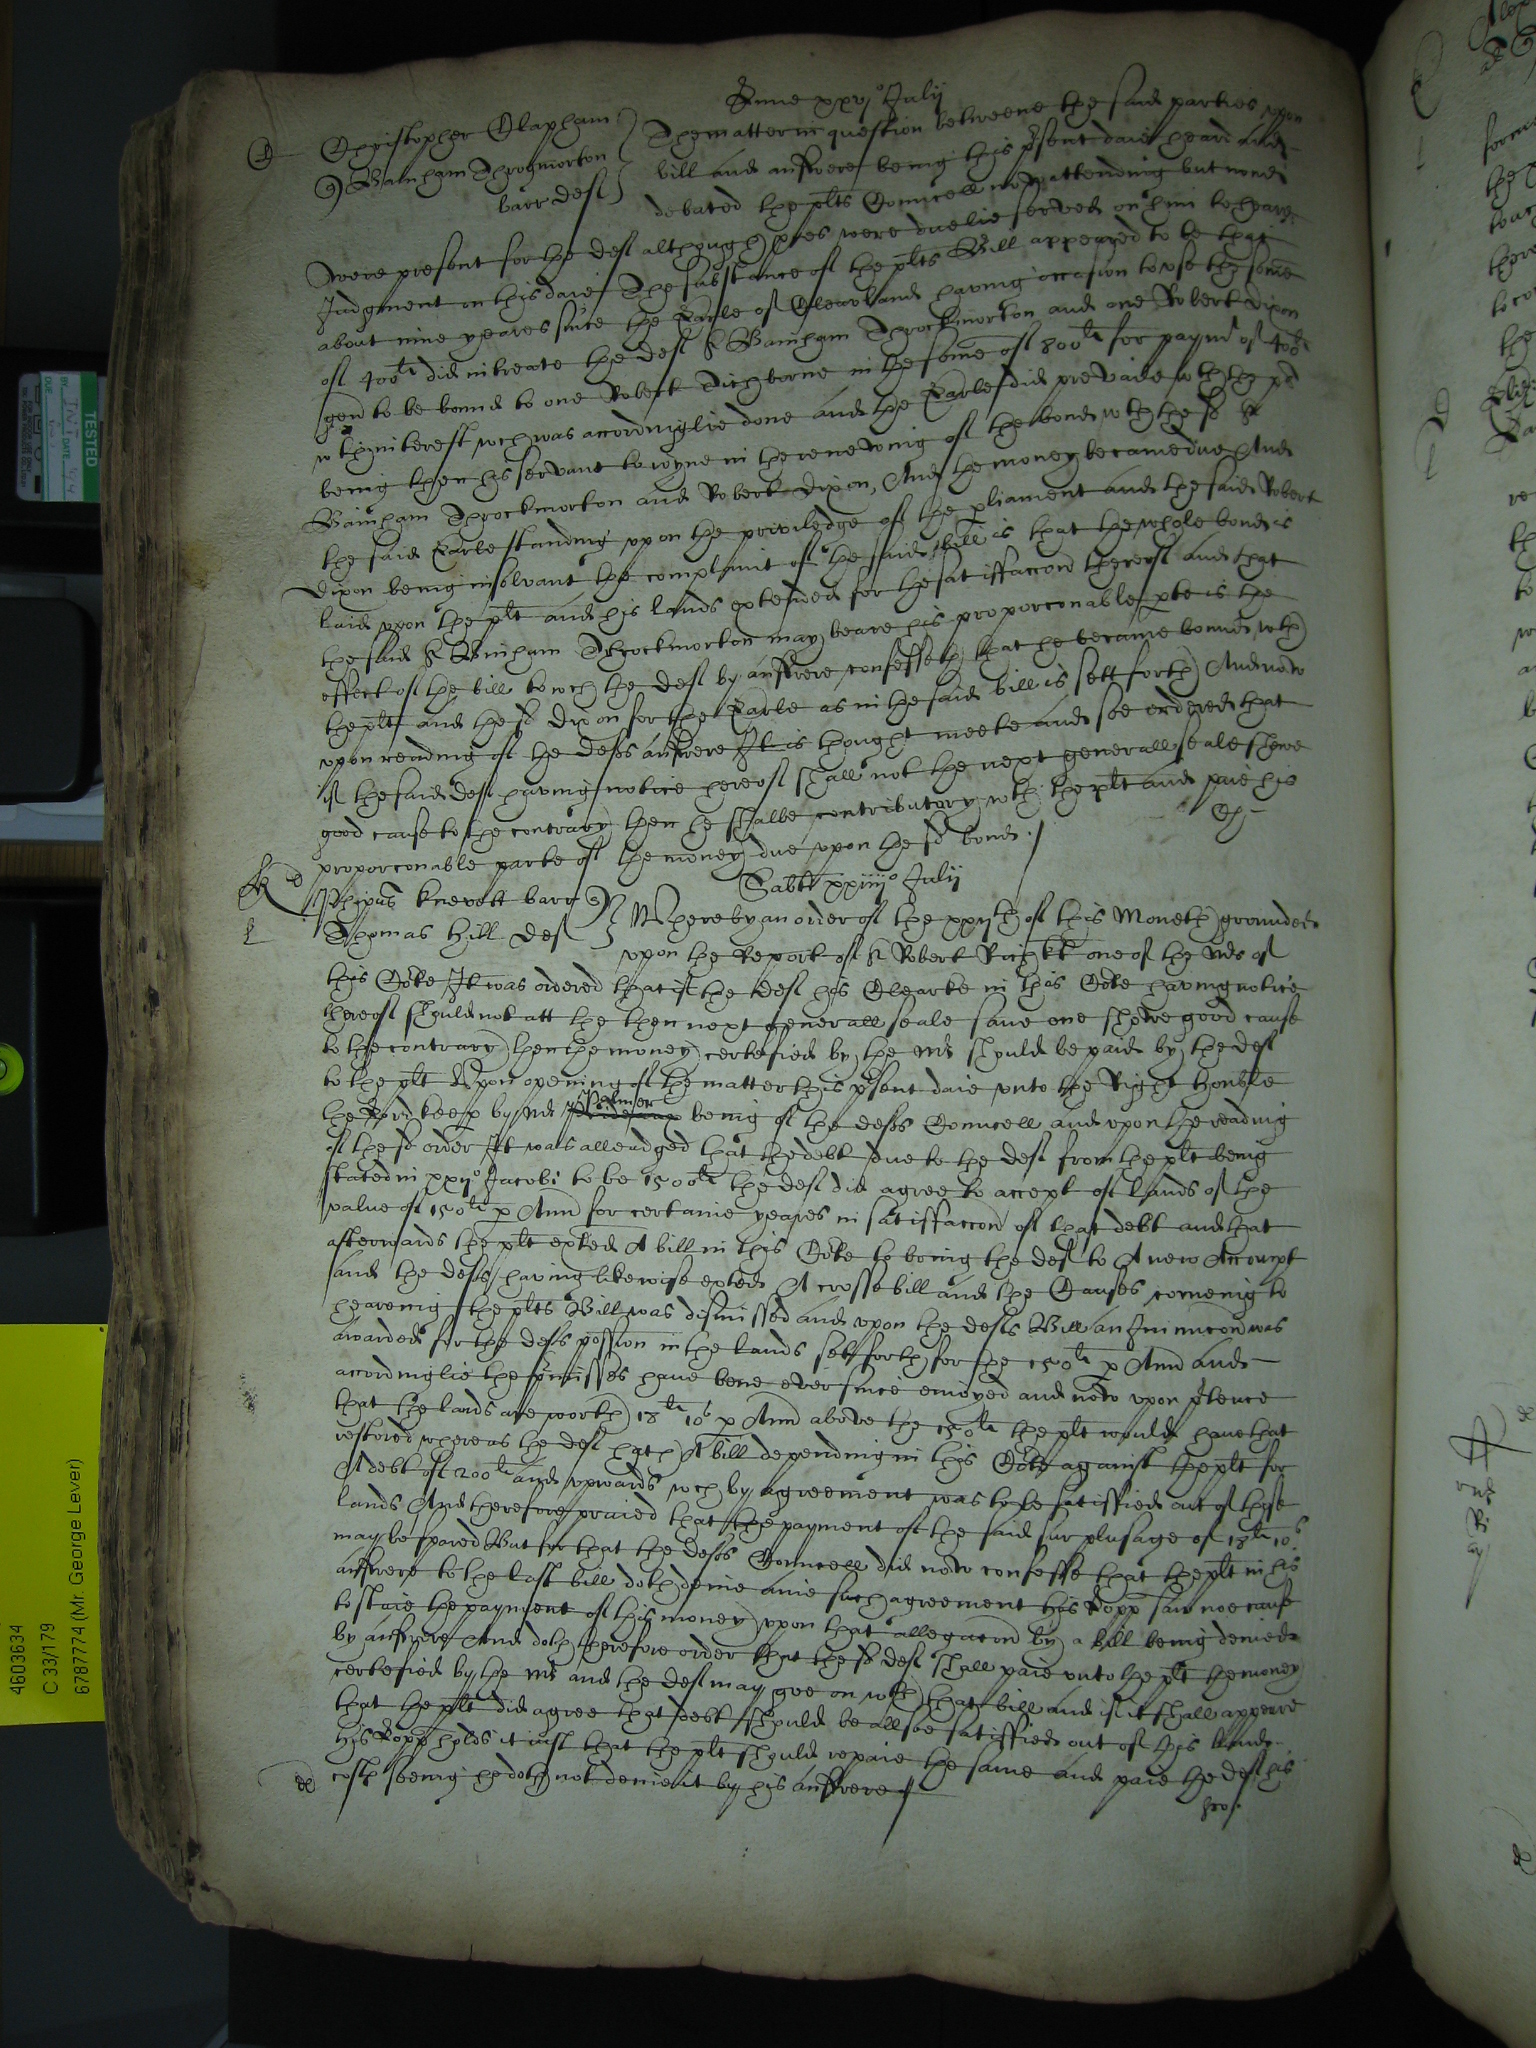 Lune xxvjo Julij
Christopher Clapham
Bainham Throgmorton
barr deft
The matter in question betweene the said parties upon
bill and answere being this psent daie heard and
debated the plts Councell now attending but none
were present for the deft although pces were duelie served on him to heare
Judgment on this daie The substance of the plts Bill appeared to be that
about nine yeares since the Earle of Cleaveland having occasion to use the some
of 400li did intreate the deft Sr Bainham Throckmorton and one Robert Dixon
gen to be bound to one Robert Tichborne in the some of 800li for paymt of 400li
wth interest wch was accordinglie done and the Earle did prevaile wth the plt
being then his servant to ioyne in the renewing of the bond wth the sd Sr
Bainham Throckmorton and Robert Dixon, And the money became due And
the said Earle standing upon the priviledge of the pliament and the said Robert
Dixon being insolvant the complaint of the said bill is that the whole bond is
laid upon the plt and his lands extended for the satisfaccon thereof and that
the said Sr Bainham Throckmorton may beare his proporconable pte is the
effect of the bill to wch the deft by answere confesseth that he became bound wth
the plt and the sd Dixon for the Earle as in the said bill is sett forth And now
upon reading of the defts answere It is thought meete and soe ordered that
if the said deft having notice hereof shall not the next generall seale shewe
good cause to the contrary then he shalbe contributory wth the plt and paie his
proporconable parte of the money due upon the sd bond
Sabti xxiiijo Julij
Phipus Knevett barr
Thomas Hill deft
Whereby an order of the xxijth of this Moneth grounded
upon the Report of Sr Robert Rich kt one of the Mrs of
this Corte It was ordered that if the deft his Clearke in this Corte having notice
thereof should not att the then next generall seale save one shewe good cause
to the contrary then the money certefied by the Mr should be paid by the deft
to the plt Upon opening of the matter this psent daie unto the Right Honble
the Lord Keep by Mr Palmer being of the defts Councell and upon the reading
of the sd order It was alleadged that the debt due to the deft from the plt being
stated in xxijo Jacobi to be 1500li the deft did agree to accept of lands of the
value of 150li p Ann for certaine yeares in satisfaccon of that debt and that
afterwards the plt exhted A bill in this Corte to bring the deft to A new Accompt
and the defts having likewise exhted A crosse bill and the Causes coming to
heareing the plts Bill was dismissed and upon the defts Bill an Iniunccon was
awarded for the defts possion in the lands sett forth for the 150li p Ann and
accordinglie the pmisses have bene ever since enioyed and now upon ptence
that the lands are worth 18li 10s p Ann above the 150li the plt would have that
restored whereas the deft hath A bill depending in this Corte against the plt for
A debt of 200li and upwards wch by agreement was to be satisfied out of those
lands And therefore praied that the payment of the said surplusage of 18li 10s
may be spared But for that the defts Councell did now confesse that the plt in his
answere to the last bill doth denie anie such agreement his Lopp saw noe cause
to staie the payment of this money upon that allegacon by a bill being denied
by answere and doth therefore order that the sd deft shall paie unto the plt the money
certefied by the Mr and the deft may goe on wth that bill and if it shall appeare
that the plt did agree that debt should be allsoe satisfied out of his lands
his Lopp holds it iust that the plt should repaie the same and paie the deft his
costs seeing he doth not denie it by his answere
4603634
C 33/179
6787774 (Mr. George Lever)
TESTED
BY INT DATE 4/4
DUE